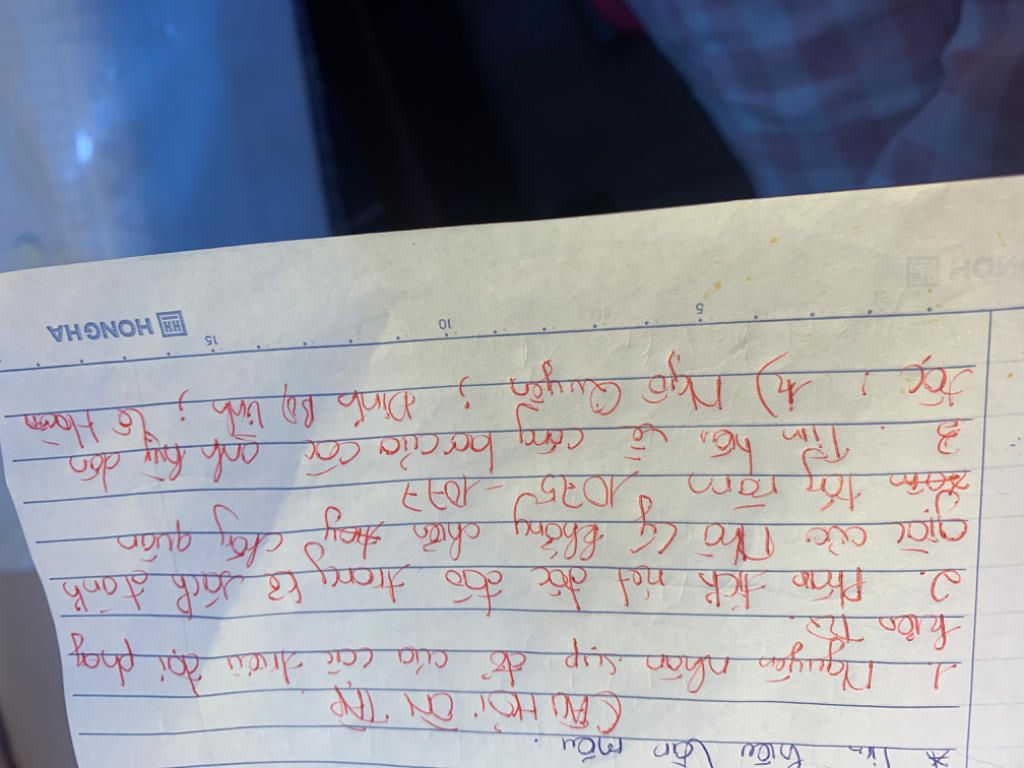 * Tìm hiểu văn mẫu.
CÂU HỎI ÔN TẬP
1. Nguyên nhân sụp đổ của các triều đại phong
kiến TQ.
2. Phân tích nét độc đáo trong kế sách đánh
giặc của Nhà Lý kháng chiến chống quân
Tống năm 1075 - 1077
3. Tìm hiểu về công lao của các anh hùng dân
tộc : Ngô Quyền ; Đinh Bộ Lĩnh ; Lê Hoàn
5
10
15
HONGHA